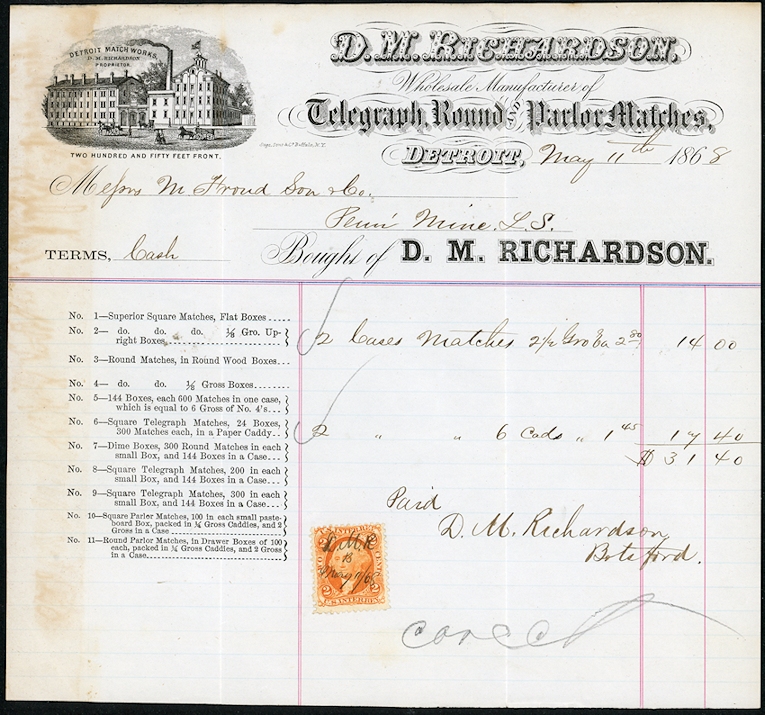 DETROIT MATCH WORKS,
D. M. RICHARDSON
PROPRIETOR.
TWO HUNDRED AND FIFTY FEET FRONT.
D. M. RICHARDSON,
Wholesale Manufacturer of
Telegraph, Round AND Parlor Matches,
DETROIT, May 11th 1868
Messrs M Stroud Son & Co.
Penn' Mine, L.S.
TERMS, Cash Bought of D. M. RICHARDSON.
No. 1—Superior Square Matches, Flat Boxes....
No. 2— do. do. do. ⅛ Gro. Up-
right Boxes,
No. 3—Round Matches, in Round Wood Boxes...
No. 4— do. do. ⅙ Gross Boxes......
No. 5—144 Boxes, each 600 Matches in one case,
which is equal to 6 Gross of No. 4's...
No. 6—Square Telegraph Matches, 24 Boxes,
300 Matches each, in a Paper Caddy..
No. 7—Dime Boxes, 300 Round Matches in each
small Box, and 144 Boxes in a Case...
No. 8—Square Telegraph Matches, 200 in each
small Box, and 144 Boxes in a Case...
No. 9—Square Telegraph Matches, 300 in each
small Box, and 144 Boxes in a Case...
No. 10—Square Parlor Matches, 100 in each small paste-
board Box, packed in ¼ Gross Caddies, and 2
Gross in a Case
No. 11—Round Parlor Matches, in Drawer Boxes of 100
each, packed in ¼ Gross Caddies, and 2 Gross
in a Case
2 Cases Matches 2½ Gro Ea 2 80 14 00
2 " " 6 Cads " 1 45 17 40
$ 31 40
Paid
D. M. Richardson
Botsford.
D.M.R
May 11/68
2 U.S. INTER. REV. 2